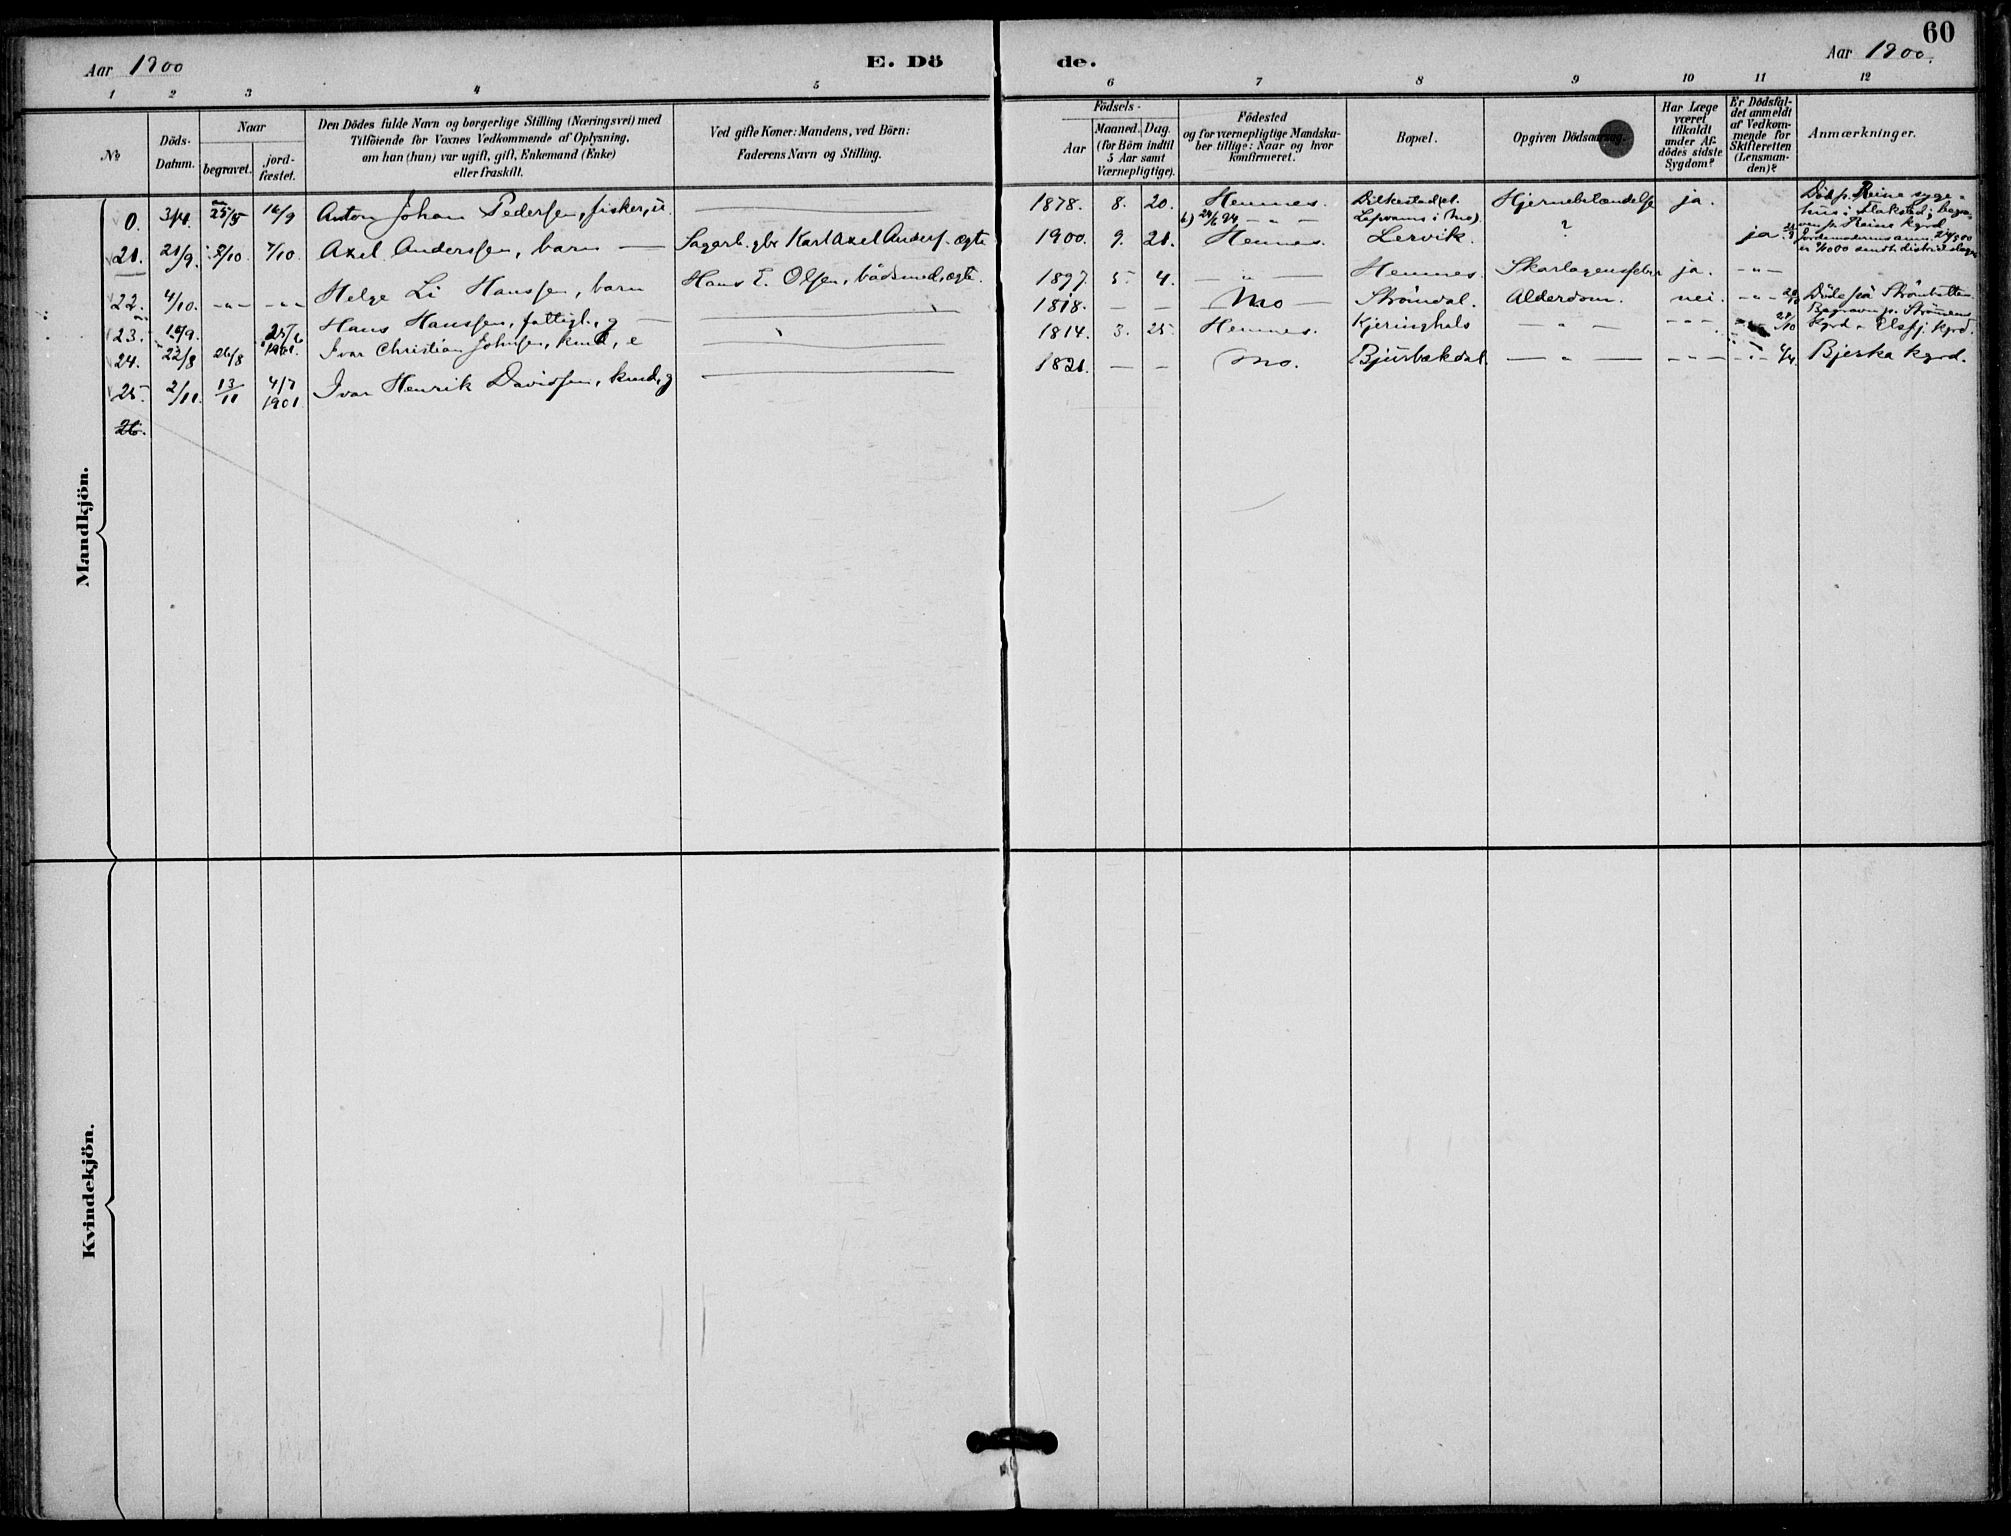 60
Aar 1900
E. Dö de.
Aar 1900.
1 2 3 4 5 6 7 8 9 10 11 12
No
Döds-Datum.
Naar
begravet.
jord-fæstet.
Den Dödes fulde Navn og borgerlige Stilling (Næringsvei) med
Tilföiende for Voxnes Vedkommende af Oplysning,
om han (hun) var ugift, gift, Enkemand (Enke)
eller fraskilt.
Ved gifte Koner: Mandens, ved Börn:
Faderens Navn og Stilling.
Födsels-
Aar
Maaned. Dag.
(for Börn indtil
5 Aar samt
Værnepligtige).
Födested
og for værnepligtige Mandska-
ber tillige: Naar og hvor
konfirmeret.
Bopæl.
Opgiven Dödsaarsag.
Har Læge
været
tilkaldt
under Af-
dödes sidste
Sygdom?
Er Dödsfal-
det anmeldt
af Vedkom-
mende for
Skifteretten
(Lensman-
den)?
Anmærkninger.
Mandkjön.
0. 3/4. 25/5 16/9 Anton Johan Pedersen, fisker, u. 1878. 8. 20. Hemnes. Hjernebetændelse ja. Död p. Reine syge-
b) 24/6 94 - " - Lapvams i Mo). hus i Flakstad; begra-
21. 21/9. 7/10 7/10. Axel Anderssen, barn Sagarb. gbr Karl Axel Anders. ægte 1900. 9. 21. Hemnes. Lervik. ? ja
22. 4/10. - " - - " - Helge Li Hanssen, barn Hans E. Olsen, bådsmed, ægte. 1897. 5. 4. - " - Hemnes. Skarlagensfeber ja. - " -
23. 10/9. 25/6 1901. Hans Hanssen, fattigl., g 1818. - - Mo Strömdal. Alderdom. nei. - " -
24. 22/8 26/8 Ivar Christian Johnsen, kaard, e 1814. 3. 25. Hemnes. Kjeringhals - " - - " - 28/10 Kgrd. Elsfj. kgrd.
25. 2/11. 13/11 4/7 1901 Ivar Henrik Davidsen, g 1821. - - Mo. Bjurbækdal. - " - - " - - " - 4/4. Bjerka kgrd.
26.
Kvindekjön.